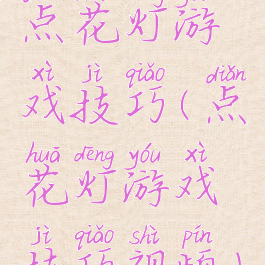 点花灯游
xì jì qiǎo diǎn
戏技巧(点
huā dēng yóu xì
花灯游戏
jì qiǎo shì pín
技巧视频)